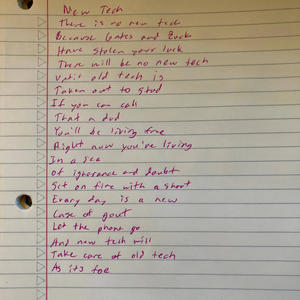 New Tech
There is no new tech
Because Gates and Zuck
Have stolen your luck
There will be no new tech
Until old tech is
Taken out to stud
If you can call
That a dud
You'll be living free
Right now you're living
In a sea
Of ignorance and doubt
Set on fire with a shout
Every day is a new
Case of gout
Let the phone go
And new tech will
Take care of old tech
As its foe